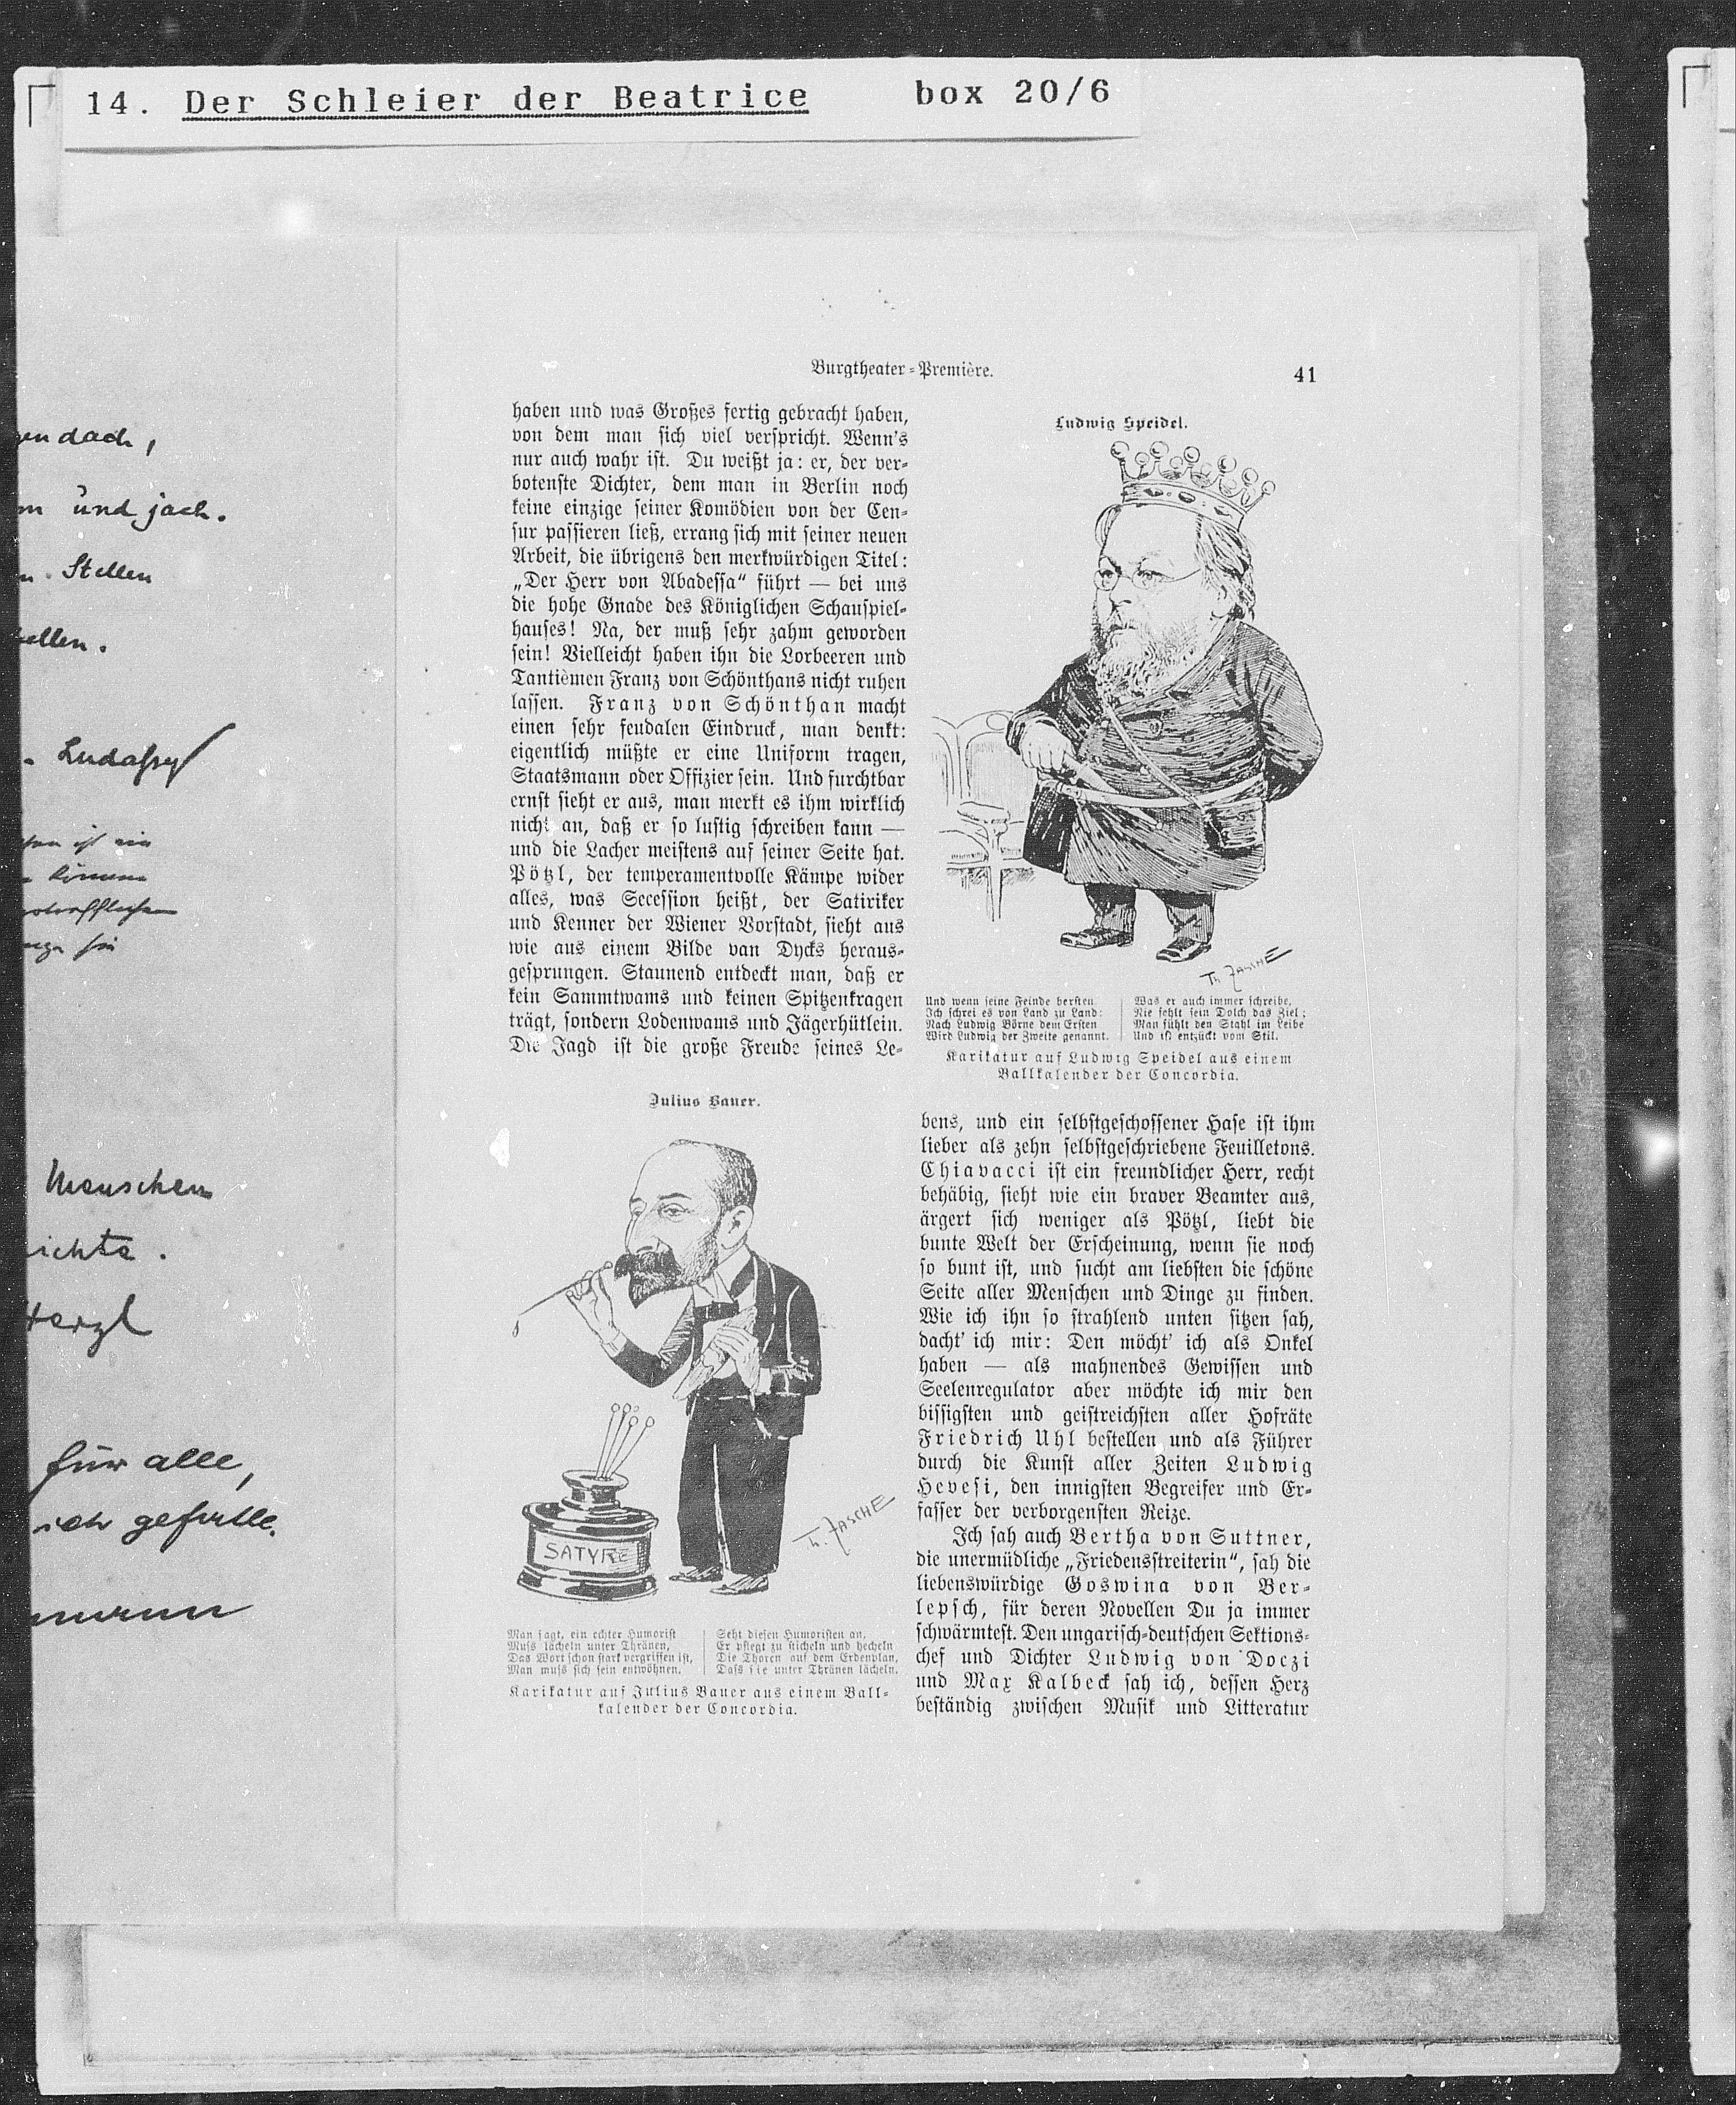 14. Der Schleier der Beatrice box 20/6
dach,
und jach.
Stellen
Ludassy
ist ein
können
Menschen
Herzl
für alle,
ich gefalle.
Burgtheater=Première. 41
haben und was Großes fertig gebracht haben,
von dem man sich viel verspricht. Wenn's
nur auch wahr ist. Du weißt ja: er, der ver=
botenste Dichter, dem man in Berlin noch
keine einzige seiner Komödien von der Cen=
sur passieren ließ, errang sich mit seiner neuen
Arbeit, die übrigens den merkwürdigen Titel:
„Der Herr von Abadessa“ führt — bei uns
die hohe Gnade des Königlichen Schauspiel=
hauses! Na, der muß sehr zahm geworden
sein! Vielleicht haben ihn die Lorbeeren und
Tantièmen Franz von Schönthans nicht ruhen
lassen. Franz von Schönthan macht
einen sehr feudalen Eindruck, man denkt:
eigentlich müßte er eine Uniform tragen,
Staatsmann oder Offizier sein. Und furchtbar
ernst sieht er aus, man merkt es ihm wirklich
nicht an, daß er so lustig schreiben kann —
und die Lacher meistens auf seiner Seite hat.
Pötzl, der temperamentvolle Kämpe wider
alles, was Secession heißt, der Satiriker
und Kenner der Wiener Vorstadt, sieht aus
wie aus einem Bilde van Dycks heraus=
gesprungen. Staunend entdeckt man, daß er
kein Sammtwams und keinen Spitzenkragen
trägt, sondern Lodenwams und Jägerhütlein.
Die Jagd ist die große Freude seines Le=
Julius Bauer.
SATYRE
Th. ZASCHE
Man sagt, ein echter Humorist
Muss lächeln unter Thränen,
Das Wort schon stark vergriffen ist,
Man muss sich sein entwöhnen.
Seht diesen Humoristen an,
Er pflegt zu sticheln und hecheln
Die Thoren auf dem Erdenplan,
Dass sie unter Thränen lächeln.
Karikatur auf Julius Bauer aus einem Ball=
kalender der Concordia.
Ludwig Speidel.
Th. ZASCHE
Und wenn seine Feinde bersten,
Ich schrei es von Land zu Land:
Nach Ludwig Börne dem Ersten
Wird Ludwig der Zweite genannt.
Was er auch immer schreibe,
Nie fehlt sein Dolch das Ziel;
Man fühlt den Stahl im Leibe
Und ist entzückt vom Stil.
Karikatur auf Ludwig Speidel aus einem
Ballkalender der Concordia.
bens, und ein selbstgeschossener Hase ist ihm
lieber als zehn selbstgeschriebene Feuilletons.
Chiavacci ist ein freundlicher Herr, recht
behäbig, sieht wie ein braver Beamter aus,
ärgert sich weniger als Pötzl, liebt die
bunte Welt der Erscheinung, wenn sie noch
so bunt ist, und sucht am liebsten die schöne
Seite aller Menschen und Dinge zu finden.
Wie ich ihn so strahlend unten sitzen sah,
dacht' ich mir: Den möcht' ich als Onkel
haben — als mahnendes Gewissen und
Seelenregulator aber möchte ich mir den
bissigsten und geistreichsten aller Hofräte
Friedrich Uhl bestellen und als Führer
durch die Kunst aller Zeiten Ludwig
Hevesi, den innigsten Begreifer und Er=
fasser der verborgensten Reize.
Ich sah auch Bertha von Suttner,
die unermüdliche „Friedensstreiterin“, sah die
liebenswürdige Goswina von Ber=
lepsch, für deren Novellen Du ja immer
schwärmtest. Den ungarisch=deutschen Sektions=
chef und Dichter Ludwig von Doczi
und Max Kalbeck sah ich, dessen Herz
beständig zwischen Musik und Litteratur